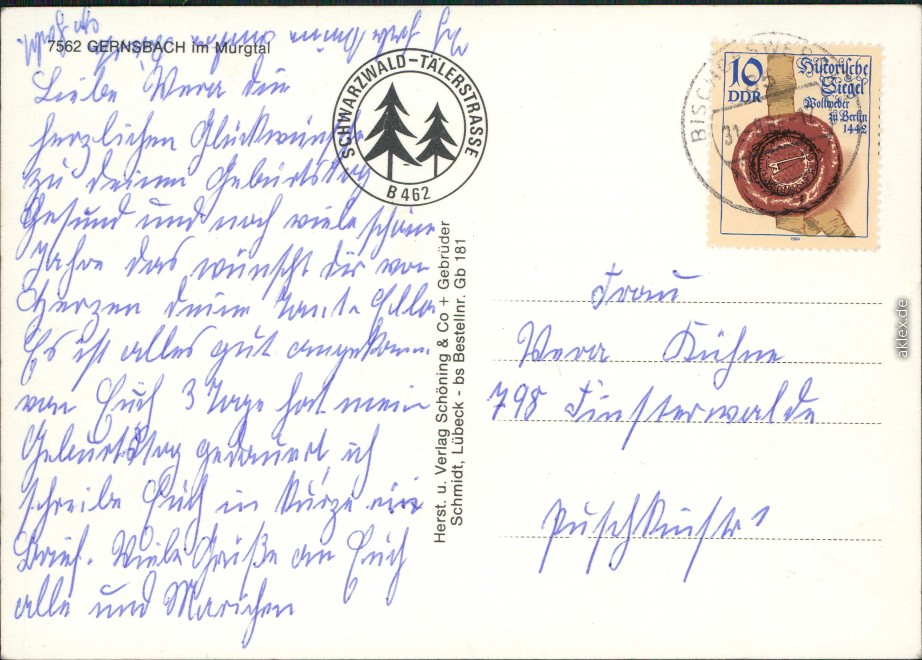 7562 GERNSBACH im Murgtal
Liebe Wera die
herzlichen Glückwünsche
zu deinem Geburtstag
Gesund und noch viele schöne
Jahre das wünscht dir von
Herzen deine Tante Ella
Es ist alles gut angekomm
von Euch 3 Tage hat mein
Geburtstag gedauert ich
schreibe Euch in Kürze ein
Brief. Viele Grüße an Euch
alle und Marichen
SCHWARZWALD-TÄLERSTRASSE
B 462
Herst. u. Verlag Schöning & Co + Gebrüder
Schmidt, Lübeck - bs Bestellnr. Gb 181
BISCHOFSWER
31
10
DDR
Historische
Siegel
Wollweber
zu Berlin
1442
1984
Frau
Wera Kühne
798 Finsterwalde
Puschkinstr 1
aklex.de